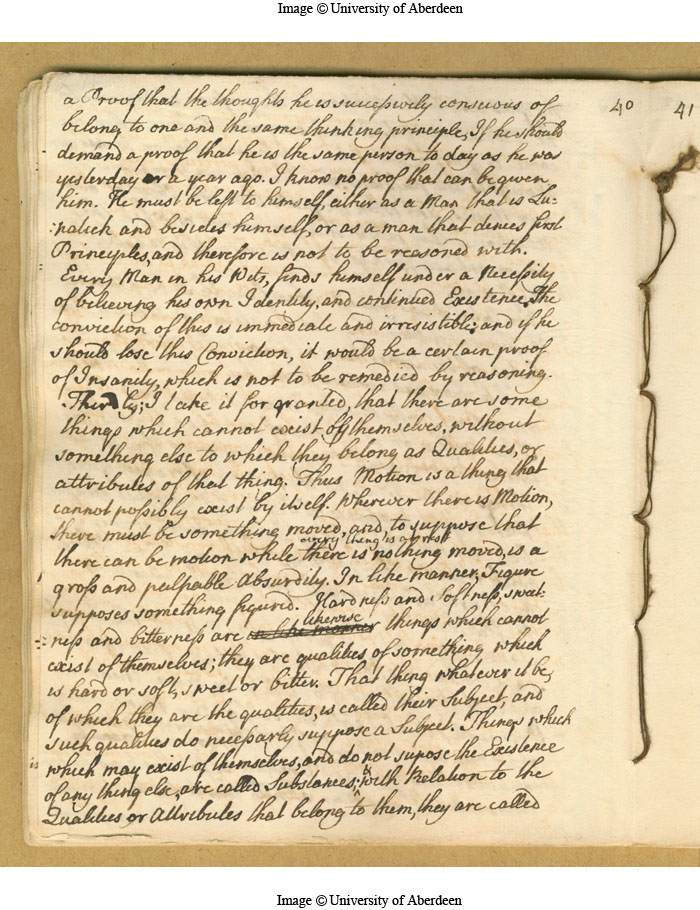 Image © University of Aberdeen
40 41
a Proof that the thoughts he is successively conscious of
belong to one and the same thinking principle, If he should
demand a proof that he is the same person to day as he was
yesterday or a year ago. I know no proof that can be given
him. He must be left to himself, either as a Man that is Lu:
:natick and besides himself, or as a man that denies first
Principles, and therefore is not to be reasoned with.
Every Man in his Wits, finds himself under a Necessity
of believing his own Identity, and continued Existence. The
conviction of this is immediate and irresistible; and if he
should lose this Conviction, it would be a certain proof
of Insanity, which is not to be remedied by reasoning.
Thirdly; I take it for granted, that there are some
things which cannot exist of themselves, without
something else to which they belong as Qualities, or
attributes of that thing. Thus Motion is a thing that
cannot possibly exist by itself. Wherever there is Motion,
there must be something moved, and, to suppose that
every thing is at rest
there can be motion while there is nothing moved, is a
gross and palpable Absurdity. In like manner, Figure
supposes something figured. Hardness and Softness, sweet:
likewise
:ness and bitterness are in like manner things which cannot
exist of themselves; they are qualities of something which
is hard or soft, sweet or bitter. That thing whatever it be,
of which they are the qualities, is called their Subject, and
such qualities do necessarly suppose a Subject. Things which
which may exist of themselves, and do not supose the Existence
of any thing else, are called Substances; with Relation to the
Qualities or Attributes that belong to them, they are called
Image © University of Aberdeen